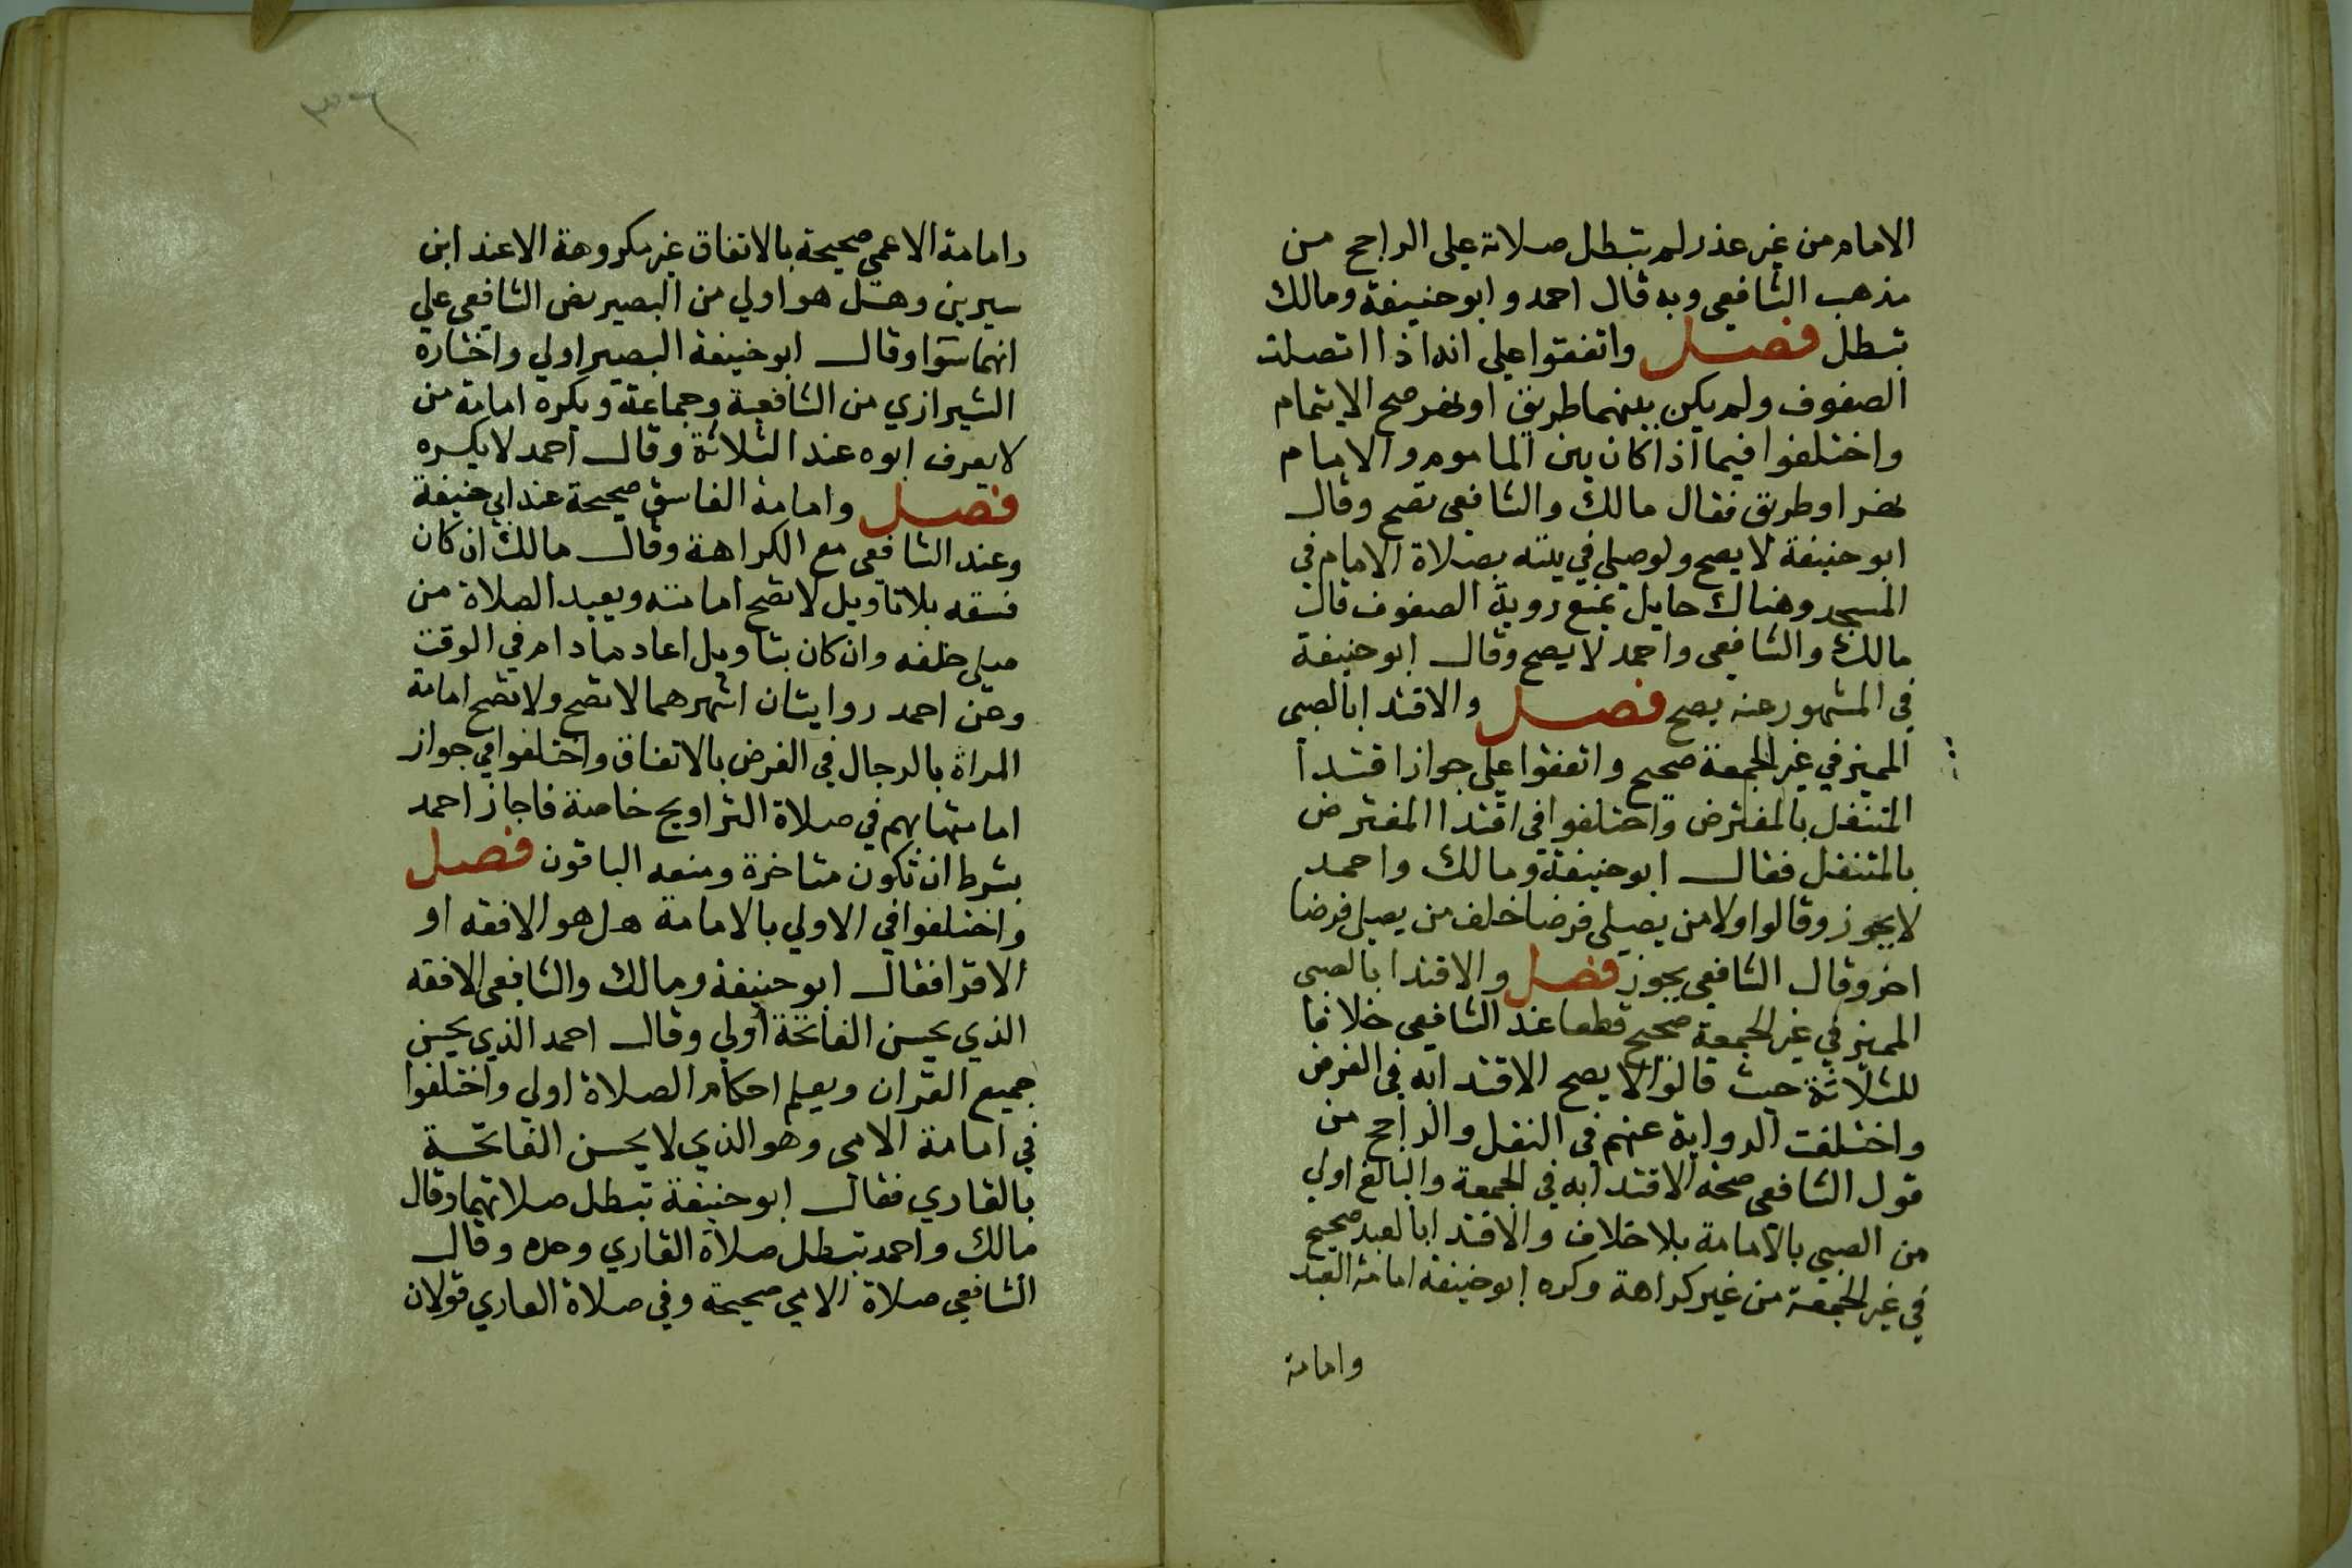 الامام من غير عذر لم تبطل صلاته علي الراجح من
مذهب الشافعي وبه قال احمد وابو حنيفة ومالك
تبطل فصل واتفقوا علي انه اذا اتصلت
الصفوف ولم يكن بينهما طريق او نهر صح الايتمام
واختلفوا فيما اذا كان بين الماموم والامام
نهر او طريق فقال مالك والشافعي تصح وقال
ابو حنيفة لا يصح ولو صلي في بيته بصلاة الامام في
المسجد وهناك حايل يمنع روية الصفوف قال
مالك والشافعي واحمد لا يصح وقال ابو حنيفة
في المشهور عنه يصح فصل والاقتدا بالصبي
المميز في غير الجمعة صحيح واتفقوا علي جواز اقتدا
المتنفل بالمفترض واختلفوا في اقتدا المفترض
بالمتنفل فقال ابو حنيفة ومالك واحمد
لا يجوز وقالوا ولا من يصلي فرضا خلف من يصلي فرضا
اخر وقال الشافعي يجوز فصل والاقتدا بالصبي
المميز في غير الجمعة صحيح قطعا عند الشافعي خلافا
للثلاثة حيث قالوا لا يصح الاقتدا به في الفرض
واختلفت الرواية عنهم في النفل والراجح من
قول الشافعي صحة الاقتدا به في الجمعة والبالغ اولي
من الصبي بالامامة بلا خلاف والاقتدا بالعبد صحيح
في غير الجمعة من غير كراهة وكره ابو حنيفة امامة العبد
وامامة
وامامة الاعمي صحيحة بالاتفاق غير مكروهة الا عند ابن
سيرين وهل هو اولي من البصير نص الشافعي علي
انهما سوا وقال ابو حنيفة البصير اولي واختاره
الشيرازي من الشافعية وجماعة ويكره امامة من
لا يعرف ابوه عند الثلاثة وقال احمد لا يكره
فصل وامامة الفاسق صحيحة عند ابي حنيفة
وعند الشافعي مع الكراهة وقال مالك ان كان
فسقه بلا تاويل لا تصح امامته ويعيد الصلاة من
صلي خلفه وان كان بتاويل اعاد مادام في الوقت
وعن احمد روايتان اشهرهما لا تصح ولا تصح امامة
المراة بالرجال في الفرض بالاتفاق واختلفوا في جواز
امامتها بهم في صلاة التراويح خاصة فاجاز احمد
بشرط ان تكون متاخرة ومنعه الباقون فصل
واختلفوا في الاولي بالامامة هل هو الافقه او
الاقرا فقال ابو حنيفة ومالك والشافعي الافقه
الذي يحسن الفاتحة اولي وقال احمد الذي يحسن
جميع القران ويعلم احكام الصلاة اولي واختلفوا
في امامة الامي وهو الذي لا يحسن الفاتحة
بالقاري فقال ابو حنيفة تبطل صلاتهما وقال
مالك واحمد تبطل صلاة القاري وحده وقال
الشافعي صلاة الامي صحيحة وفي صلاة القاري قولان